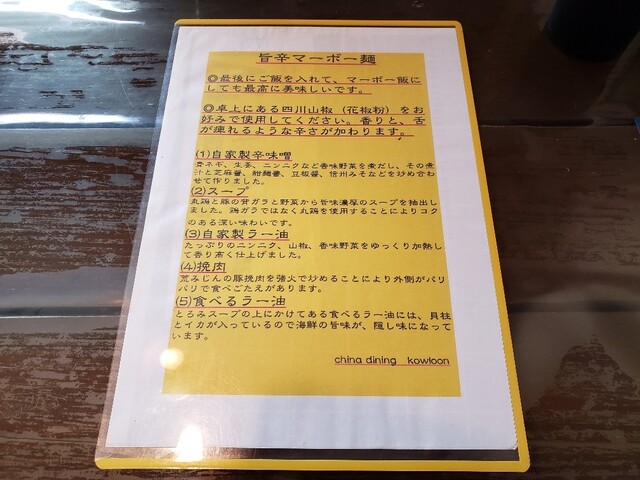 旨辛マーボー麺
◎最後にご飯を入れて、マーボー飯に
しても最高に美味しいです。
◎卓上にある四川山椒（花椒粉）をお
好みで使用してください。香りと、舌
が痺れるような辛さが加わります。
(1)自家製辛味噌
青ネギ、生姜、ニンニクなど香味野菜を煮だし、その煮
汁と芝麻醤、甜麺醤、豆板醤、信州みそなどを炒め合わ
せて作りました。
(2)スープ
丸鶏と豚の背ガラと野菜から旨味濃厚のスープを抽出し
ました。鶏ガラではなく丸鶏を使用することによりコク
のある深い味わいです。
(3)自家製ラー油
たっぷりのニンニク、山椒、香味野菜をゆっくり加熱し
て香り高く仕上げました。
(4)挽肉
荒みじんの豚挽肉を強火で炒めることにより外側がパリ
パリで食べごたえがあります。
(5)食べるラー油
とろみスープの上にかけてある食べるラー油には、貝柱
とイカが入っているので海鮮の旨味が、隠し味になって
います。
china dining kowloon